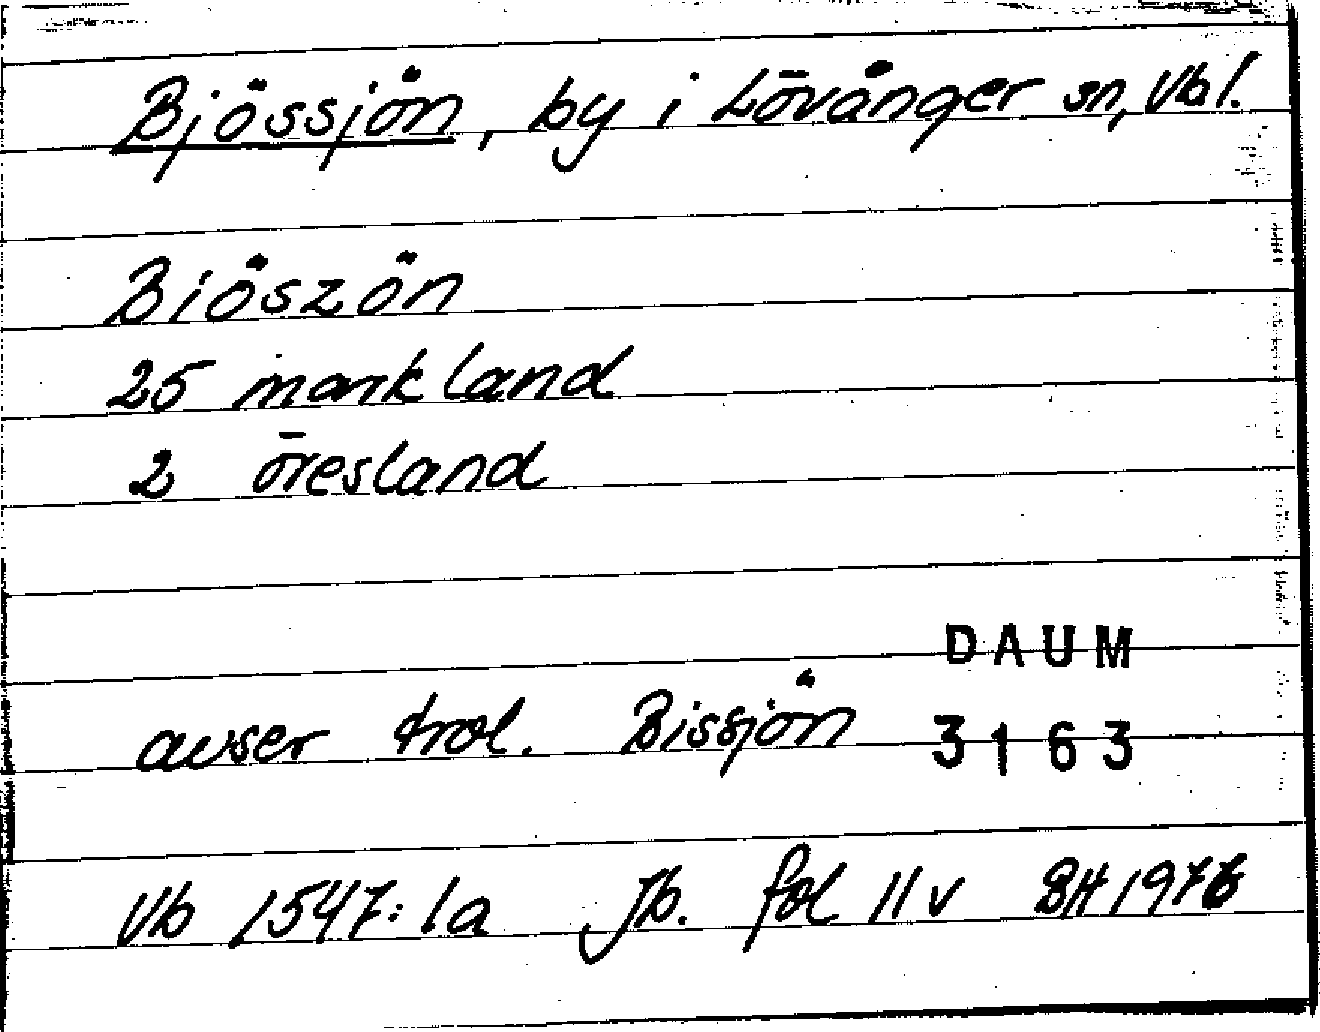 Bjössjön, by i Lövånger sn, Vbl.
Biöszön
25 markland
2 öresland
DAUM
avser trol. Bissjön
3163
Vb 1547:1a Jb. fol 11v BH 1976